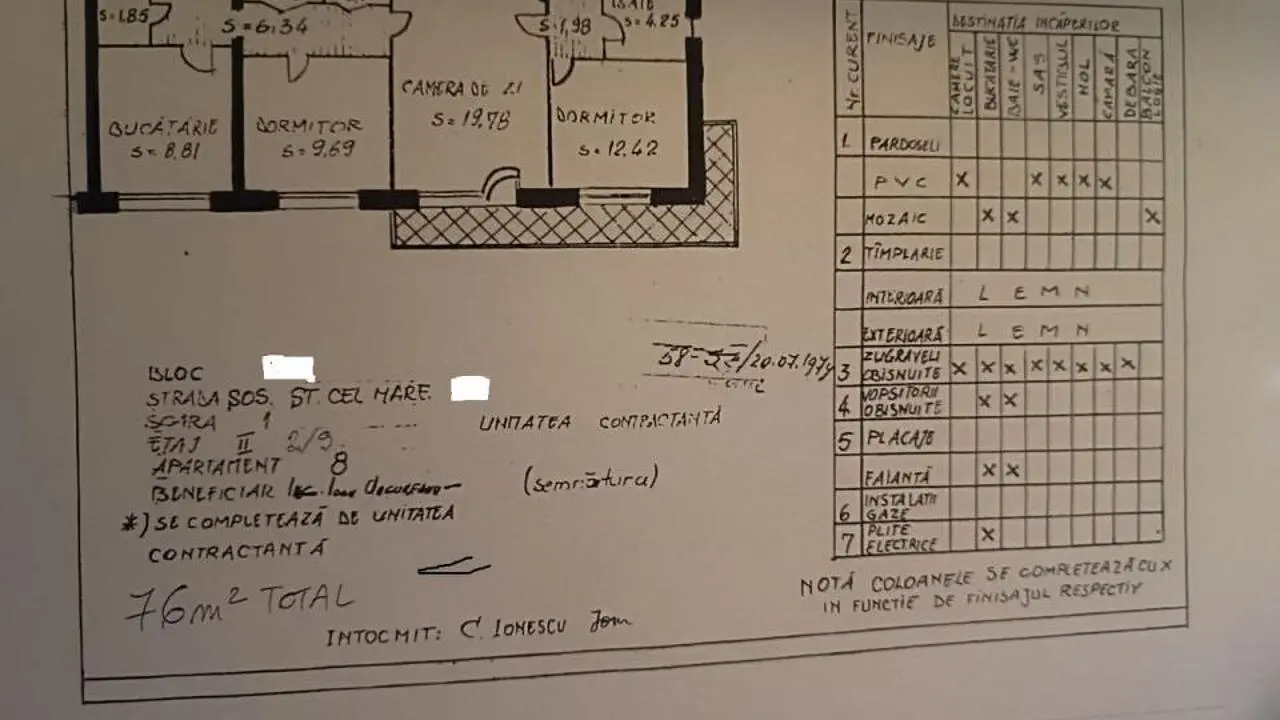 S=1,85
S=6,34
S=1,98
BAIE
S=4.25
CAMERA DE ZI
S=19,78
BUCĂTĂRIE
S=8,81
DORMITOR
S=9,69
DORMITOR
S=12,42
Nr. CURENT
FINISAJE
DESTINAȚIA INCĂPERILOR
CAMERE LOCUIT
BUCATARIE
BAIE-WC
SAS
VESTIBUL
HOL
CAMARĂ
DEBARA
BALCON LOGIE
1 PARDOSELI
PVC X X X X X
MOZAIC X X X
2 TÎMPLARIE
INTERIOARĂ L E M N
EXTERIOARĂ L E M N
3 ZUGRAVELI OBISNUITE X X X X X X X X
4 VOPSITORII OBISNUITE X X
5 PLACAJE
FAIANTĂ X X
6 INSTALATII GAZE
7 PLITE ELECTRICE X
NOTĂ COLOANELE SE COMPLETEAZĂ CU X
IN FUNCTIE DE FINISAJUL RESPECTIV
/20.07.1979
BLOC
STRADA ȘOS. ȘT. CEL MARE
SCARA 1
ETAJ II 2/9
APARTAMENT 8
BENEFICIAR
UNITATEA CONTRACTANTĂ
(semnătura)
*) SE COMPLETEAZĂ DE UNITATEA
CONTRACTANTĂ
76m² TOTAL
INTOCMIT: C. IONESCU